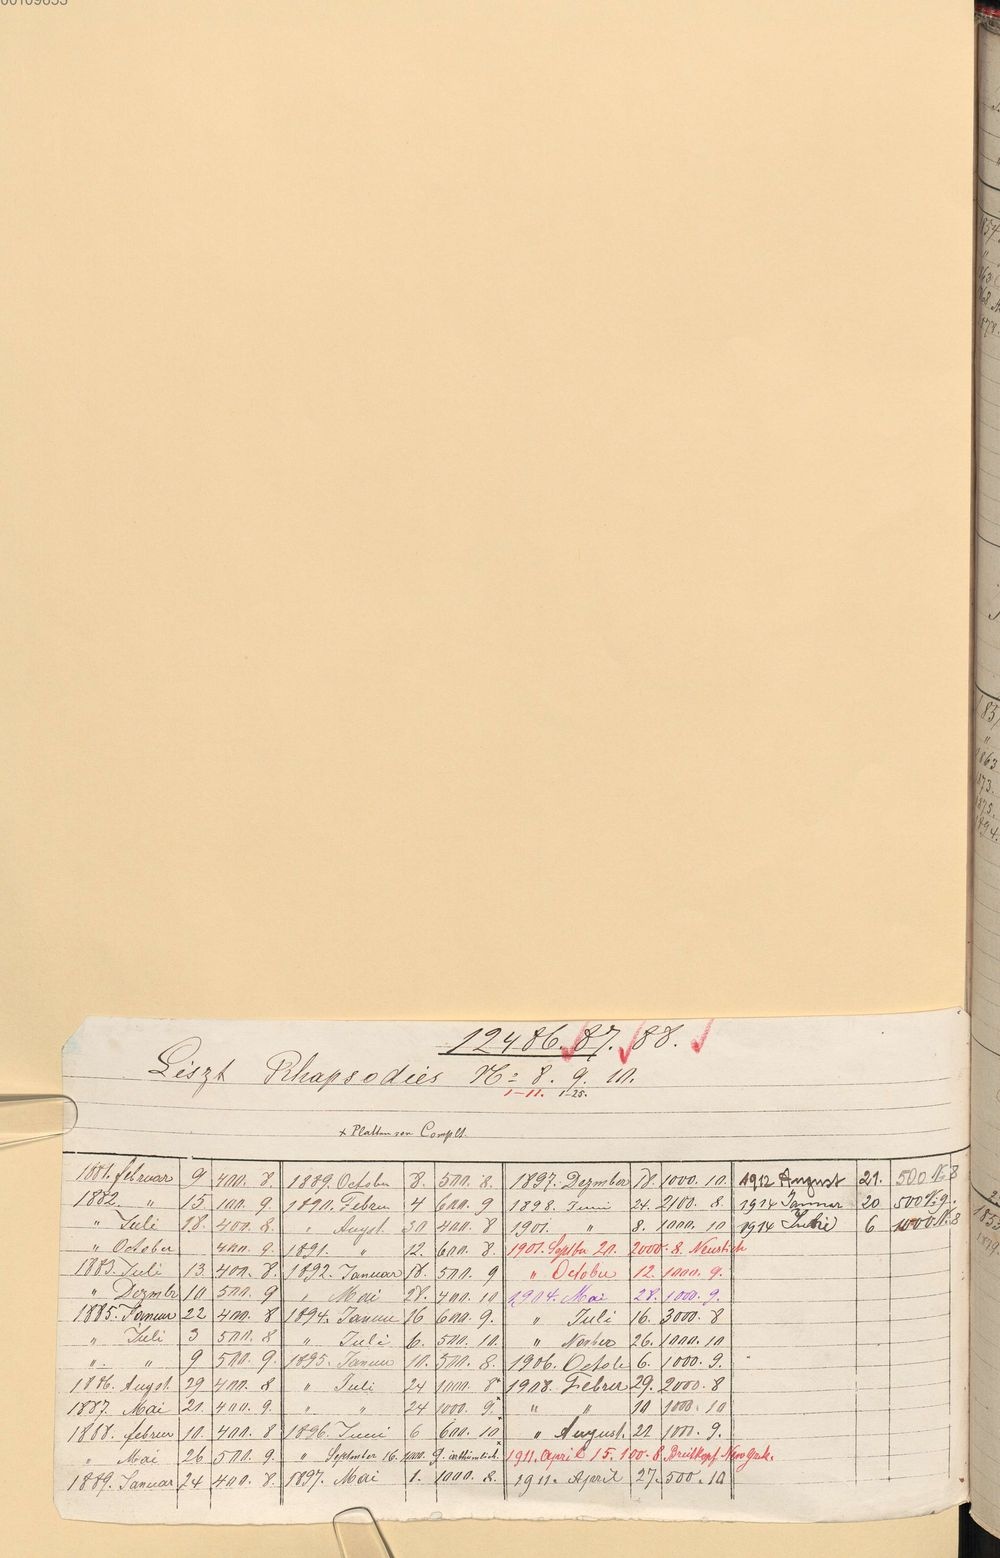 00109655
12486. 87. 88.
Liszt Rhapsodies No 8. 9. 10.
1-11. 1-25.
+ Platten von Complt.
1881. februar 9 400. 8.
1882. " 15 100. 9.
" Juli 18. 400. 8.
" October 400. 9.
1883. Juli 13. 400. 8.
" Dezmbr 10 500. 9
1885. Januar 22 400. 8
" Juli 3 500. 8
" " 9 500. 9.
1886. Augst. 29 400. 8
1887. Mai 21. 400. 9.
1888. februar 10. 400. 8
" Mai 26 500. 9
1889. Januar 24 400. 8.
1889. October 8. 500. 8.
1890. Februar 4 600. 9
" Augst. 30 400. 8
1891. " 12. 600. 8.
1892. Januar 18. 500. 9
" Mai 28. 400. 10
1894. Januar 16 600. 9.
" Juli 6. 500. 10.
1895. Januar 10. 500. 8.
" Juli 24 1000. 8+
" " 24 1000. 9+
1896. Juni 6 600. 10+
" September 16. 1000. 9.
1897. Mai 1. 1000. 8.
1897. Dezmber 18. 1000. 10.
1898. Juni 24. 2100. 8.
1901. " 8. 1000. 10
1901. Septbr 20. 2000. 8. Neustich
" October 12. 1000. 9.
1904. Mai 28. 1000. 9.
" Juli 16. 3000. 8
" Novber 26. 1000. 10
1906. Octobr 6. 1000. 9.
1908. Februar 29. 2000. 8
" " 10 1000. 10
" August. 21 1000. 9.
1911. April 15. 100. 8. Breitkopf New York.
1911. April 27. 500. 10
1912 August 21. 500 N. 8
1914 Januar 20 500 N. 9.
1914 Juli 6 1000. N. 8